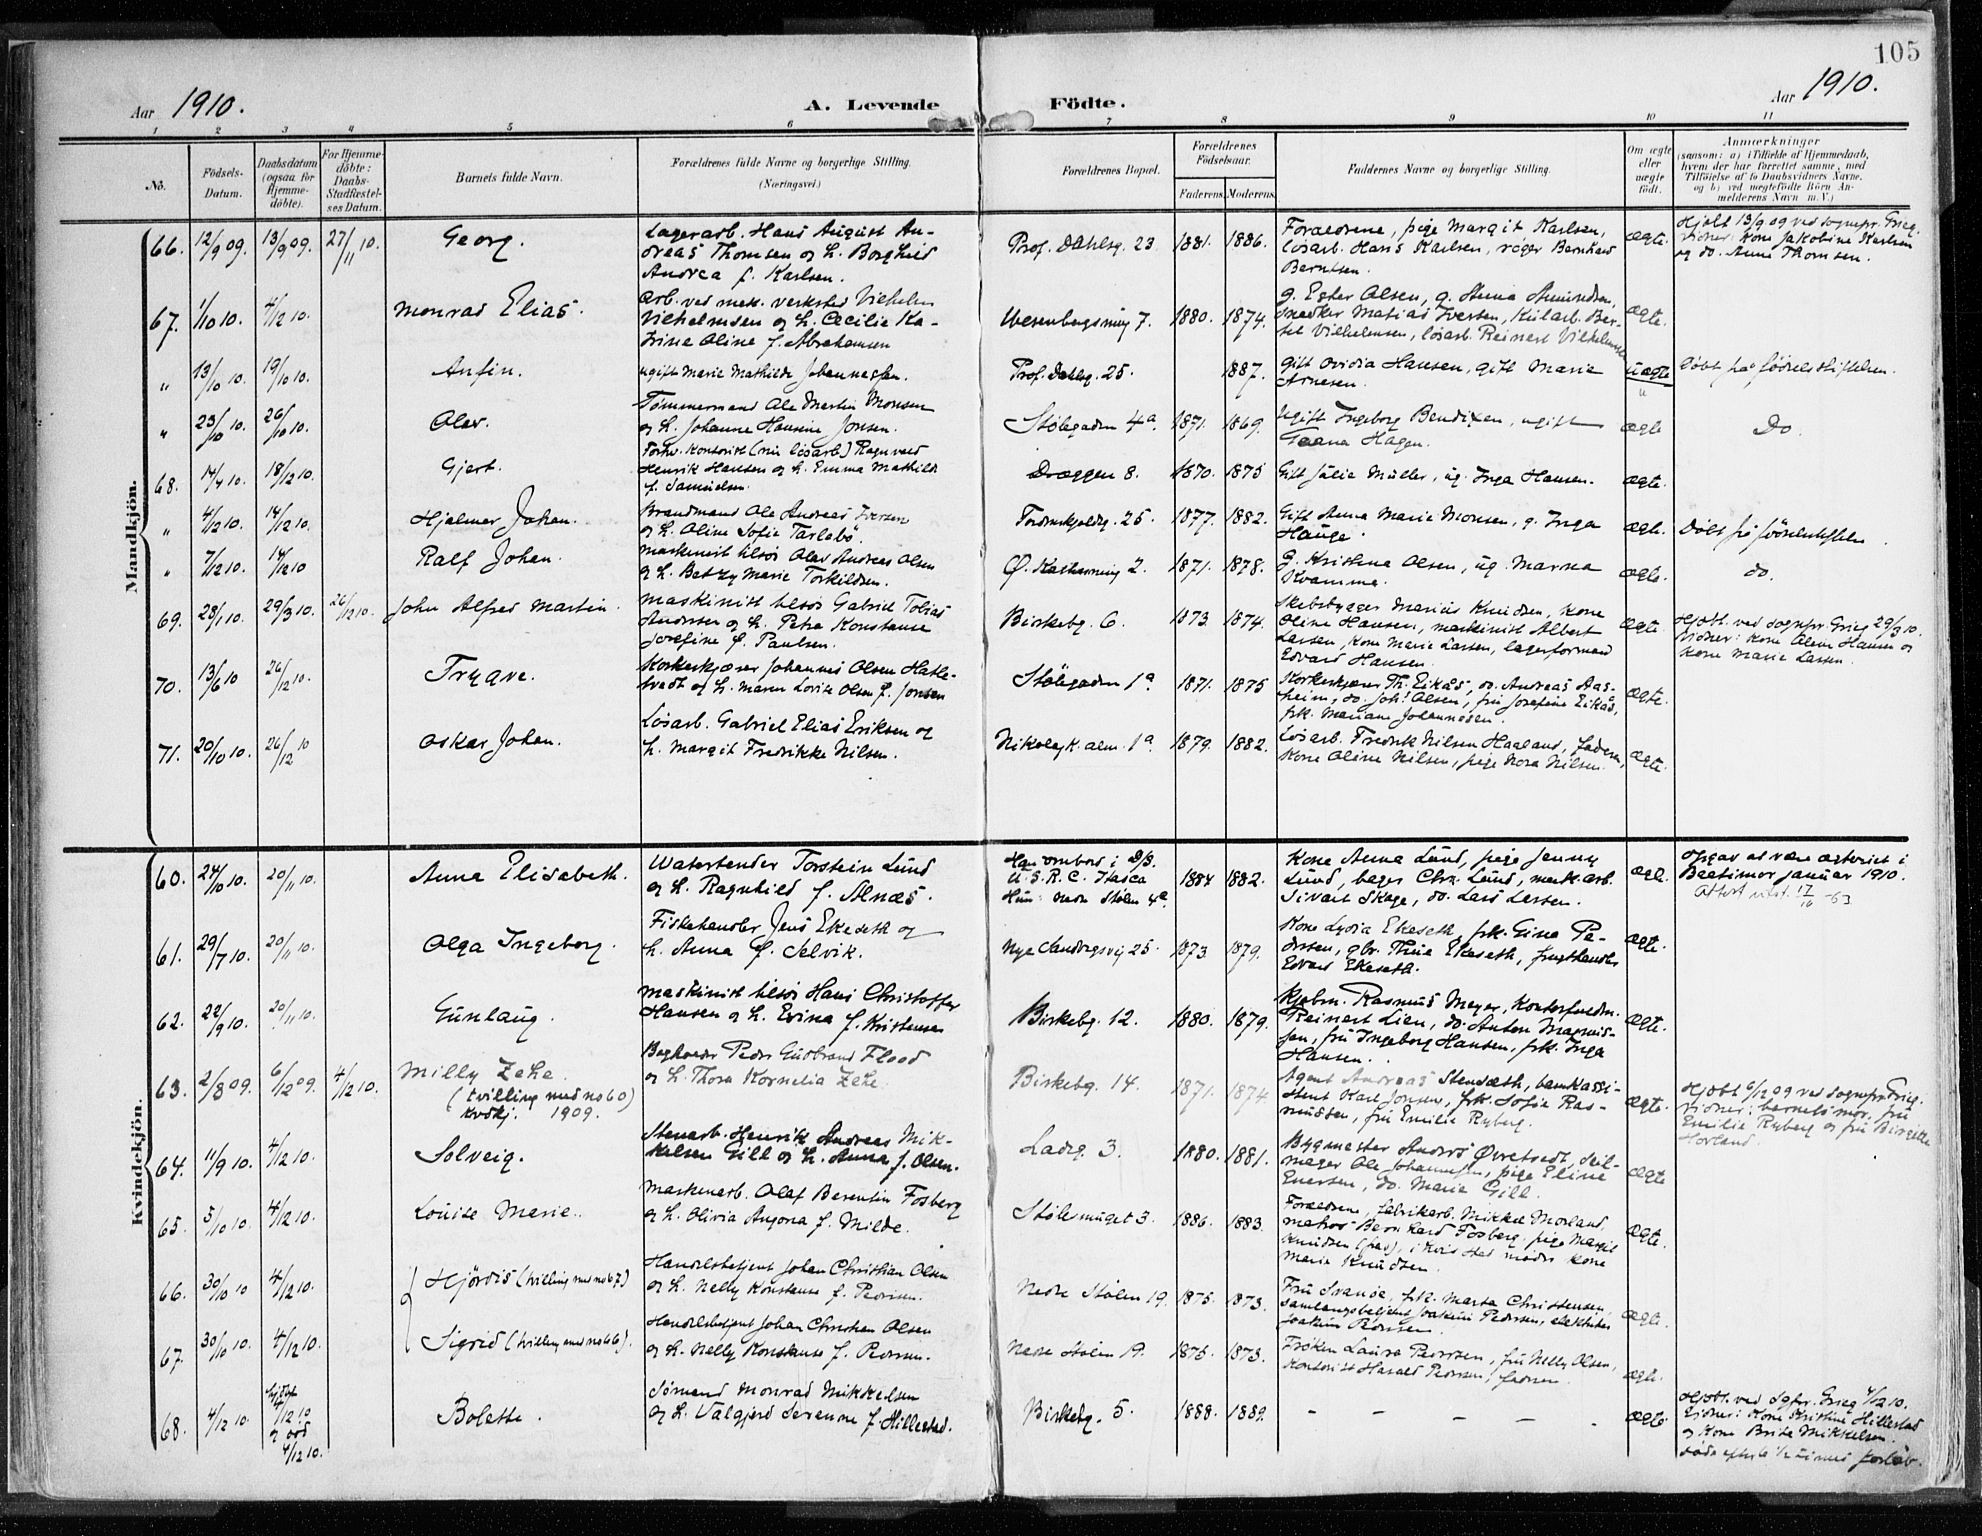 105
Aar 1910.
A. Levende Födte.
Aar 1910.
1 2 3 4 5 6 7 8 9 10 11
No.
Födsels-
Datum.
Daabsdatum
(ogsaa for
Hjemme-
döbte).
For Hjemme-
döbte:
Daabs-
Stadfæstel-
ses Datum.
Barnets fulde Navn.
Forældrenes fulde Navne og borgerlige Stilling.
(Næringsvei.)
Forældrenes Bopæl.
Forældrenes
Födselsaar.
Faderens. Moderens.
Faddernes Navne og borgerlige Stilling.
Om ægte
eller
uægte
födt.
Anmærkninger
(saasom: a) i Tilfælde af Hjemmedaab,
hvem der har forrettet samme, med
Tilföielse af to Daabsvidners Navne,
og b) ved uægtefödte Börn An-
melderens Navn m. V.)
Mandkjön.
66. 12/9 09. 13/9 09. 27/11 10. Georg.
Lagerarb. Hans August An-
dreas Thomsen og h. Borghild
Andrea f. Karlsen.
Prof. Dahlsg. 23. 1881. 1886.
Forældrene, pige Margit Karlsen,
løsarb. Hans Karlsen, røger Bernhard
Berntsen.
ægte.
Hjdbt 13/9 09 ved sognepr. Grieg.
Vidner: kone Jakobine Karlsen
og do. Anna Thomsen.
67. 1/10 10. 4/12 10. Monrad Elias.
Arb. ved mek. verksted Vilhelm
Vilhelmsen og h. Cecilie Ka-
trine Oline f. Abrahamsen
Wesenbergsmug 7. 1880. 1874.
g. Ester Olsen, g. Anna Amundsen,
snedker Matias Iversen, kularb. Ber-
tel Vilhelmsen, løsarb. Reinert Vilhelmsen
ægte.
" 13/10 10. 19/10 10. Anfin.
ugift Marie Mathilde Johannessen.
Prof. Dahlsg. 25. 1887.
Gift Ovidia Hansen, gift Marie
Arnesen.
uægte
Døbt paa fødselsstiftelsen.
" 23/10 10. 26/10 10. Olav.
Tømmermand Ole Martin Monsen
og h. Johanne Hansine Jonsen.
Stølegaden 4a. 1871. 1869.
Ugift Ingeborg Bendixen, ugift
Hagen.
ægte
Do.
68. 14/4 10. 18/12 10. Gjert.
Forhv. kontorist (nu løsarb) Ragnvald
Henrik Hansen og h. Emma Mathilde
f. Samuelsen.
Dræggen 8. 1870. 1875
Gift Julie Müller, ug. Inga Hansen.
ægte.
" 4/12 10. 14/12 10. Hjalmar Johan.
Brandmand Ole Andreas Iversen
og h. Oline Sofie Tarlebø.
Tordenskjoldsg. 25. 1877. 1882.
Gift Anna Marie Monsen, g. Inga
Hauge.
ægte.
Døbt på fødselsstiftelsen.
" 7/12 10. 14/12 10 Ralf Johan.
Maskinist tilsøs Olav Andreas Olsen
og h. Betzy Marie Torkildsen.
Ø. Kastnering 2. 1871. 1878.
G. Kristina Olsen, ug. Marna
Kvamme.
ægte.
do.
69. 28/1 10. 29/3 10. 26/12 10. John Alfred Martin.
Maskinist tilsøs Gabriel Tobias
Andersen og h. Petra Konstanse
Josefine f. Paulsen.
Birkebg. 6. 1873. 1874.
Skibsbygger Marius Knudsen, kone
Oline Hansen, maskinist Albert
Larsen, kone Marie Larsen, lagerformand
Edvard Hansen.
ægte.
Hjdbt. ved sognepr. Grieg 29/3 10.
Vidner: kone Oline Hansen og
kone Marie Larsen.
70. 13/6 10 26/12 10. Trygve.
Korkeskjærer Johannes Olsen Hatle-
tvedt og h. Maren Lovise Olsen f. Jonsen
Stølegaden 1a. 1871. 1875
Korkeskjærer Th. Eikås, do. Andreas Aas-
heim, do Joh. Olsen, fru Josefine Eikås,
frk. Mariane Johannesen.
ægte.
71. 20/10 10. 26/12 10 Oskar Johan.
Løsarb. Gabriel Elias Eriksen og
h. Margit Fredrikke Nilsen.
Nikolaik. alm. 1a. 1879. 1882.
Løsarb. Fredrik Nilsen Haaland, faderen,
kone Oline Nilsen, pige Nora Nilsen.
ægte.
Kvindekjön.
60. 24/10 10. 20/11 10. Anna Elisabeth.
Watertender Torstein Lund
og h. Ragnhild f. Alnæs.
Han ombord i D/S.
U.S.R.C. Itasca
Hun: Nedre Stølen 4a.
1884 1882.
Kone Anna Lund, pige Jenny
Lund, bager Chr. Lund, mask. arb.
Sivert Skage, do. Lars Larsen.
ægte.
Opgav at være ægteviet i
Baltimor januar 1910.
Attest utst. 17/10 -63
61. 29/7 10. 20/11 10. Olga Ingeborg.
Fiskehandler Jens Ekeseth og
h. Anna f. Selvik.
Nye Sandviksvej 25. 1873. 1879.
Kone Lydia Ekeseth, frk. Gina Pe-
dersen, gbr. Thue Ekeseth, frugthandler
Edvard Ekeseth.
ægte.
62. 22/9 10. 20/11 10. Gunlaug.
Maskinist tilsøs Hans Christoffer
Hansen og h. Evina f. Kristensen
Birkebg. 12. 1880. 1879.
Kjøbm. Rasmus Meyer, kontorfuldm.
Reinert Lien, do. Anton Magnus-
sen, fru Ingeborg Hansen, frk. Inga
Hansen.
ægte.
63. 2/8 09. 6/12 09. 4/12 10. Milly Zehe.
(tvilling med no 60)
kvdkj. 1909.
Bogholder Peder Gudbrand Flood
og h. Thora Kornelia Zehe.
Birkebg. 14. 1871. 1874
Agent Andreas Stensæth, bankassi-
stent Karl Jonsen, frk. Sofie Ras-
mussen, fru Emilie Ryberg.
ægte.
Hjdbt 6/12 09 ved sognepr. Grieg.
Vidner: barnets mor, fru
Emilie Ryberg og fru Birgitte
Hovland.
64. 11/9 10. 4/12 10. Solveig.
Stenarb. Henrik Andreas Mik-
kelsen Gill og h. Anna f. Olsen.
Ladeg. 3. 1880. 1881.
Bygmester Anders Øvretvedt, seil-
mager Ole Johannessen, pige Eline
Enersen, do. Marie Gill.
ægte
65. 5/10 10. 4/12 10. Louise Marie.
Maskinarb. Olaf Berentin Fosberg
og h. Olivia Angona f. Milde.
Stølesmuget 3. 1886. 1883.
Forældrene, fabrikarb. Mikkel Morland,
matros Bernhard Fosberg, pige Margit
Knudsen (frav), i hvis sted møder kone
Marie Knudsen.
ægte.
66. 30/10 10 4/12 10. Hjördis (tvilling med no 67.)
Handelsbetjent Johan Christian Olsen
og h. Nelly Konstanse f. Pedersen.
Nedre Stølen 19. 1875. 1873.
Fru Svanøe, frk. Marta Christensen,
samlagsbetjent Joakim Pedersen, elektriker
Joakim Pedersen.
ægte.
67. 30/10 10. 4/12 10. Sigrid (tvilling med no 66).
Handelsbetjent Johan Christian Olsen
og h. Nelly Konstanse f. Pedersen.
Nedre Stølen 19. 1875. 1873.
Frøken Laura Pedersen, fru Nelly Olsen,
kontorist Harald Pedersen, faderen.
ægte.
68. 4/12 10. hjdbt 4/12 10 og död 4/12 10. Bolette.
Sømand Monrad Mikkelsen
og h. Valgjerd Severine f. Hillestad.
Birkebg. 5. 1888. 1889.
– – – – –
ægte
Hjdbt. ved sgpr. Grieg 4/12 10.
Vidner: kone Kristine Hillestad
og kone Brite Mikkelsen.
Døde efter 1/2 times forløb.